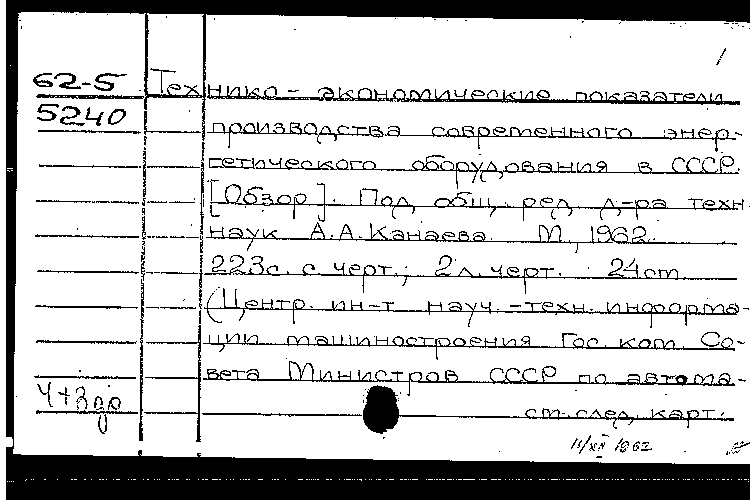 1
62-5 Технико-экономические показатели
5240
производства современного энер-
гетического оборудования в СССР.
[Обзор]. Под общ. ред. д-ра техн.
наук А.А.Канаева. М., 1962.
223с. с черт.; 2 л. черт. 24см.
(Центр. ин-т науч.-техн. информа-
ции машиностроения Гос. ком. Со-
вета Министров СССР по автома-
см. след. карт.
11/XII 1962